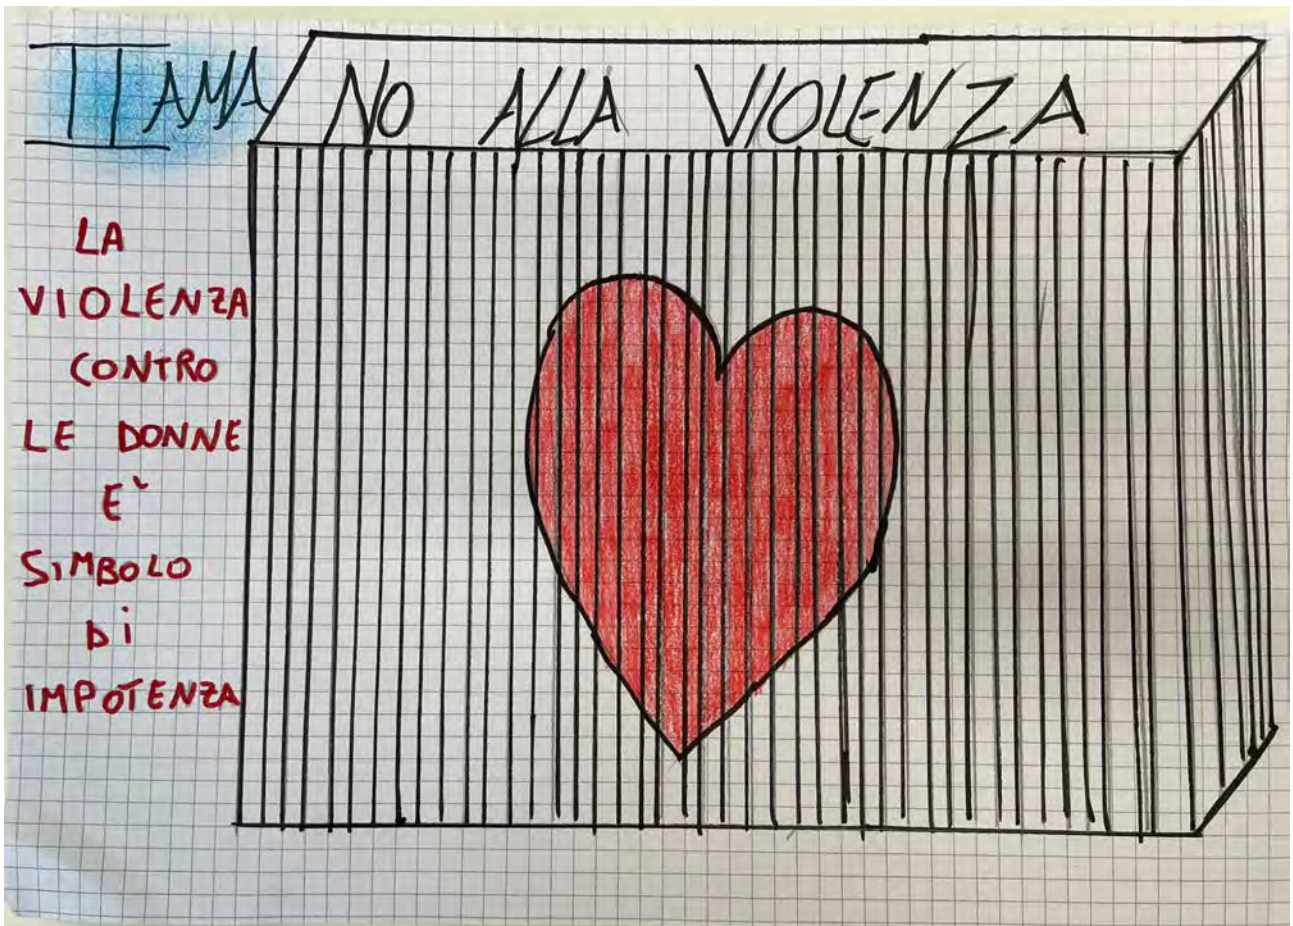 II AMA
NO ALLA VIOLENZA
LA
VIOLENZA
CONTRO
LE DONNE
E`
SiMBOLO
Di
IMPOTENZA